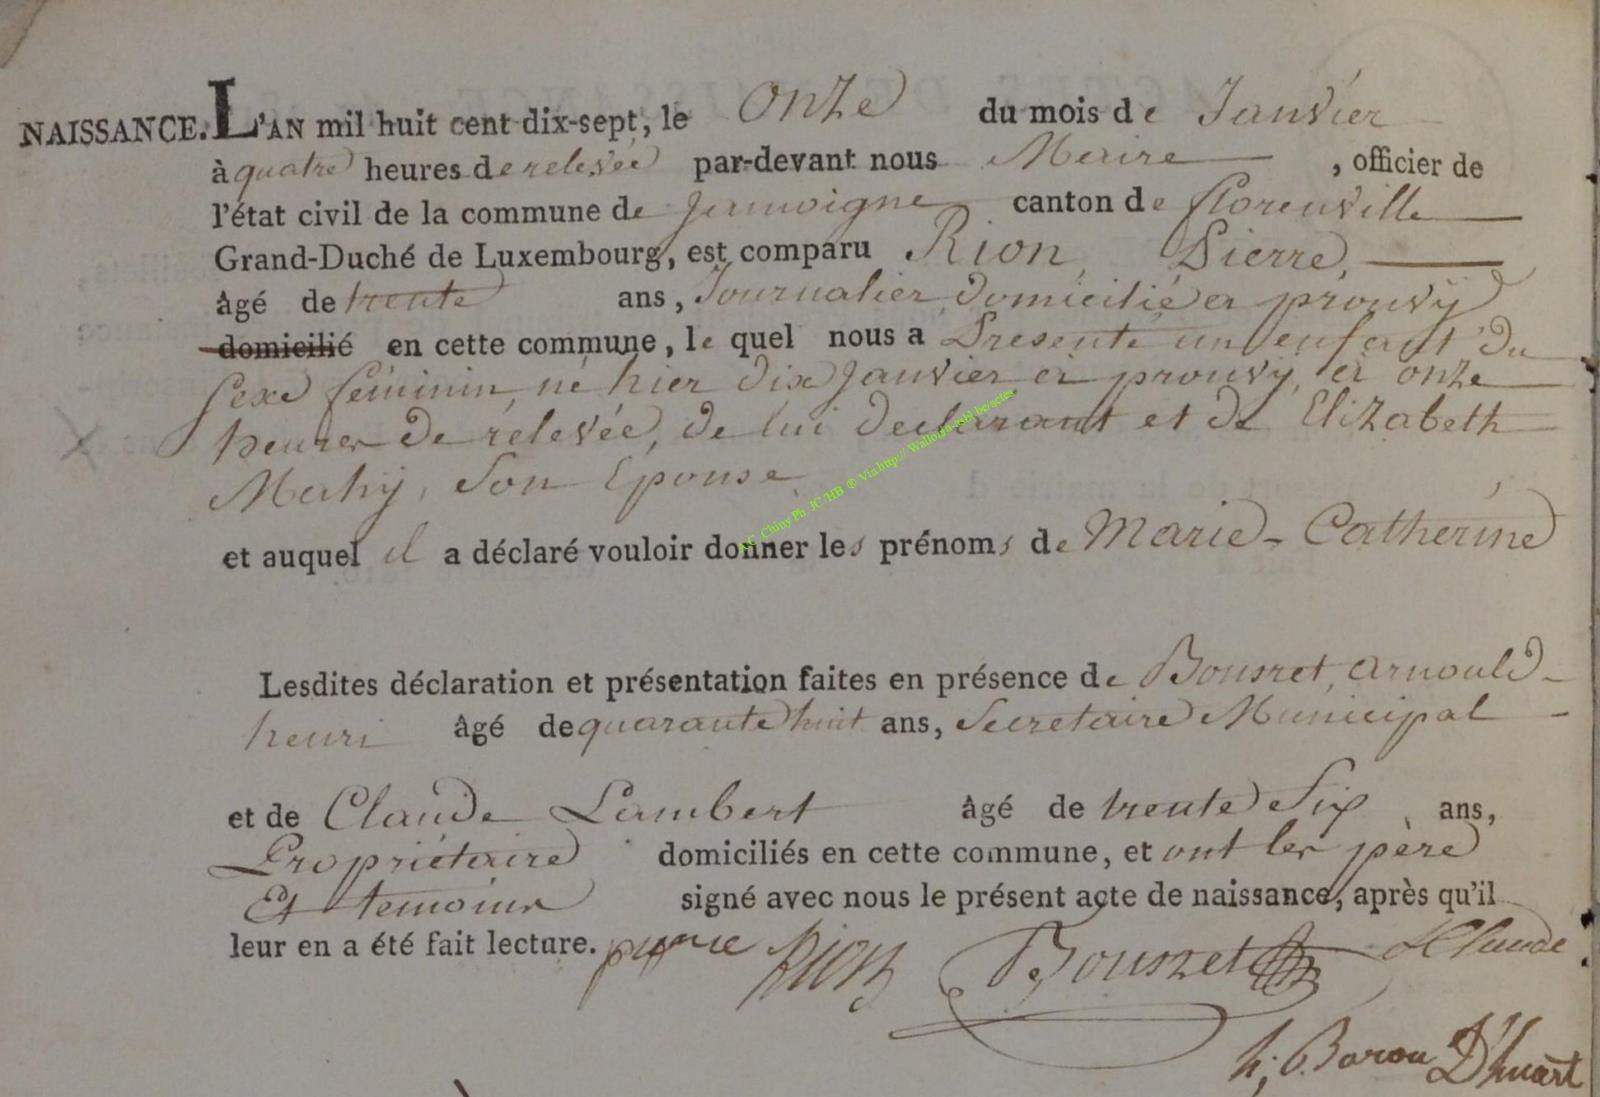 NAISSANCE. L'AN mil huit cent dix-sept, le Onze du mois de Janvier
à quatre heures de relevée par-devant nous Maire , officier de
l'état civil de la commune de Jamoigne canton de florenville
Grand-Duché de Luxembourg, est comparu Rion, Pierre,
âgé de trente ans, Journalier, domicilié à prouvÿ
domicilié en cette commune, le quel nous a Presenté un enfant du
Sexe féminin, né hier dix Janvier à prouvÿ, à onze
heures de rélevée, de lui declarant et de Elizabeth
Mahÿ, Son Epouse
et auquel il a déclaré vouloir donner les prénoms de Marie-Catherine
Lesdites déclaration et présentation faites en présence de Bousret, arnould-
henri âgé de quarante huit ans, Secretaire Municipal
et de Claude Lambert âgé de trente Six ans,
Propriétaire domiciliés en cette commune, et ont les père
Et temoins signé avec nous le présent acte de naissance, après qu'il
leur en a été fait lecture. pierre Rion Bousret Claude
h; Baron D'huart